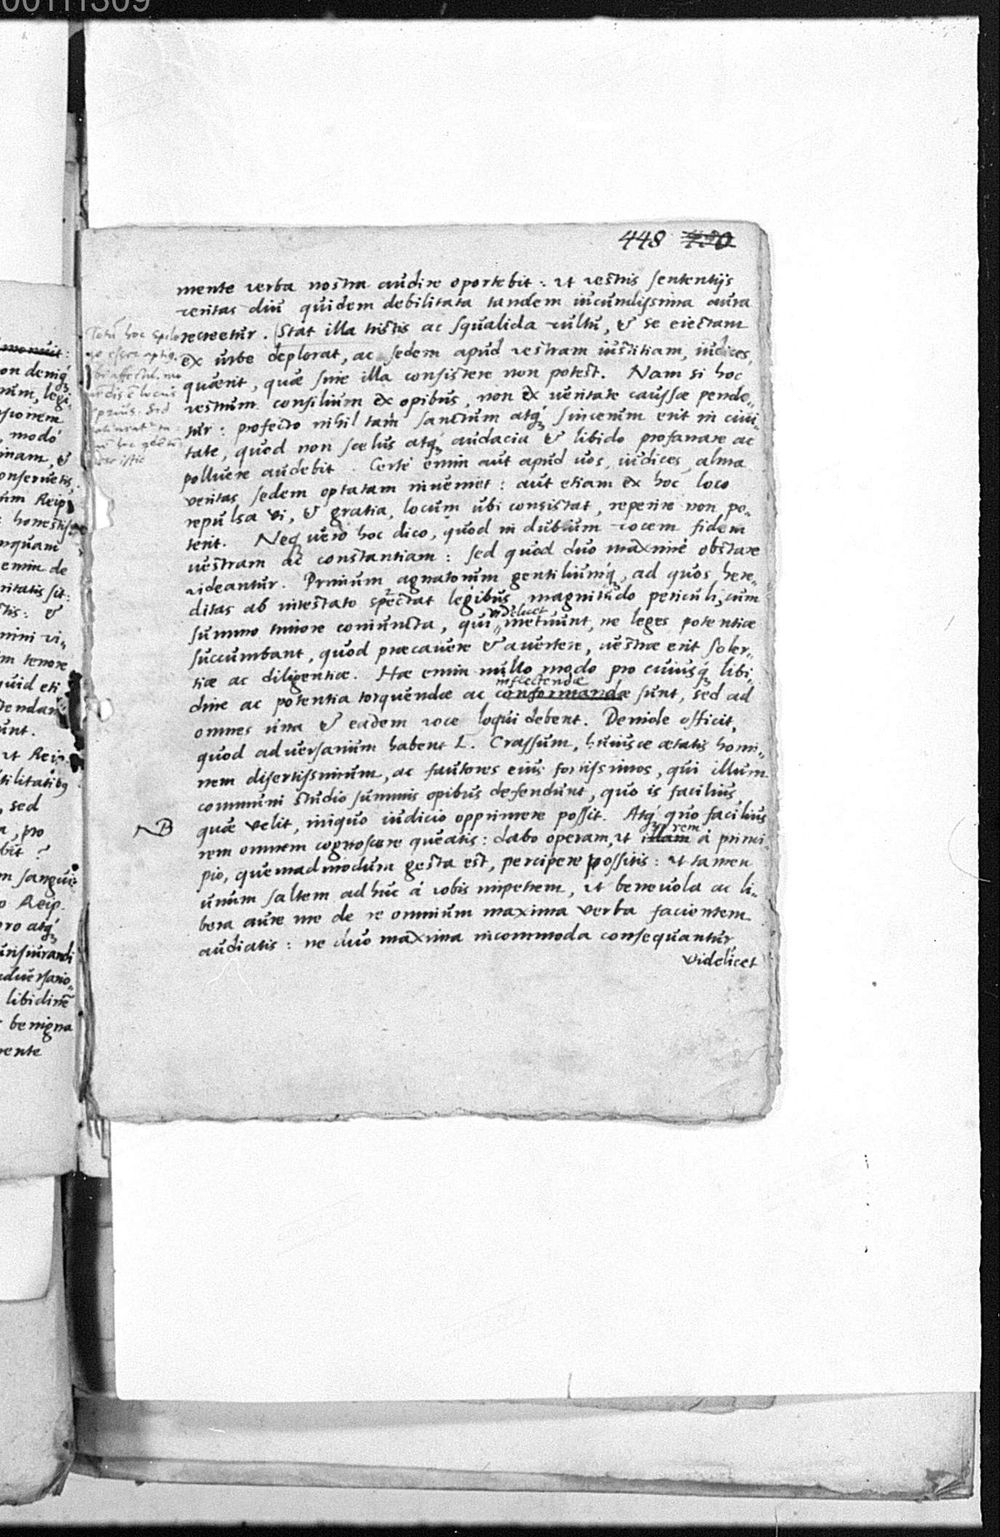 00111309
448 450
mente verba nostra audire oportebit : ut vestris sententijs
veritas diu quidem debilitata tandem iucundissima aura
recreetur. Stat illa tristis ac squalida vultu, & se eiectam
ex urbe deplorat, ac sedem apud vestram iustitiam, iudices,
quærit, quæ sine illa consistere non potest. Nam si hoc
vestrum consilium ex opibus, non ex veritate caussæ pende„
tur : profecto nihil tam sanctum atq; sincerum erit in ciui„
tate, quod non scelus atq; audacia & libido profanare ac
polluere audebit. Certè enim aut apud uos, iudices, alma
veritas sedem optatam inueniet : aut etiam ex hoc loco
repulsa vi, & gratia, locum ubi consistat, reperire non po„
terit. Neq; uero hoc dico, quod in dubium vocem fidem
uestram ac constantiam : sed quod duo maximè obstare
videantur. Primum agnatorum gentiliumq;, ad quos here„
ditas ab intestato spectat legibus, magnitudo periculi, cum
videlicet
summo timore coniuncta, qui„ metuunt, ne leges potentiæ
succumbant, quod præcauere & auertere, uestræ erit soler„
tiæ ac diligentiæ. Hæ enim nullo modo pro cuiusq; libi„
inflectendæ
dine ac potentia torquendæ ac conformandæ sunt, sed ad
omnes una & eadem voce loqui debent. Deinde officit,
quod aduersarium habent L. Crassum, huiusce ætatis homi„
nem disertissimum, ac fautores eius fortissimos, qui illum
communi studio summis opibus defendunt, quo is facilius
quæ velit, iniquo iudicio opprimere possit. Atq; quo facilius
NB
rem omnem cognoscere queatis : dabo operam, ut illam à princi„
rem
pio, quemadmodum gesta est, percipere possitis : ut tamen
unum saltem adhuc à vobis impetrem, ut beneuola ac li„
bera aure me de re omnium maxima verba facientem
audiatis : ne duo maxima incommoda consequantur
videlicet